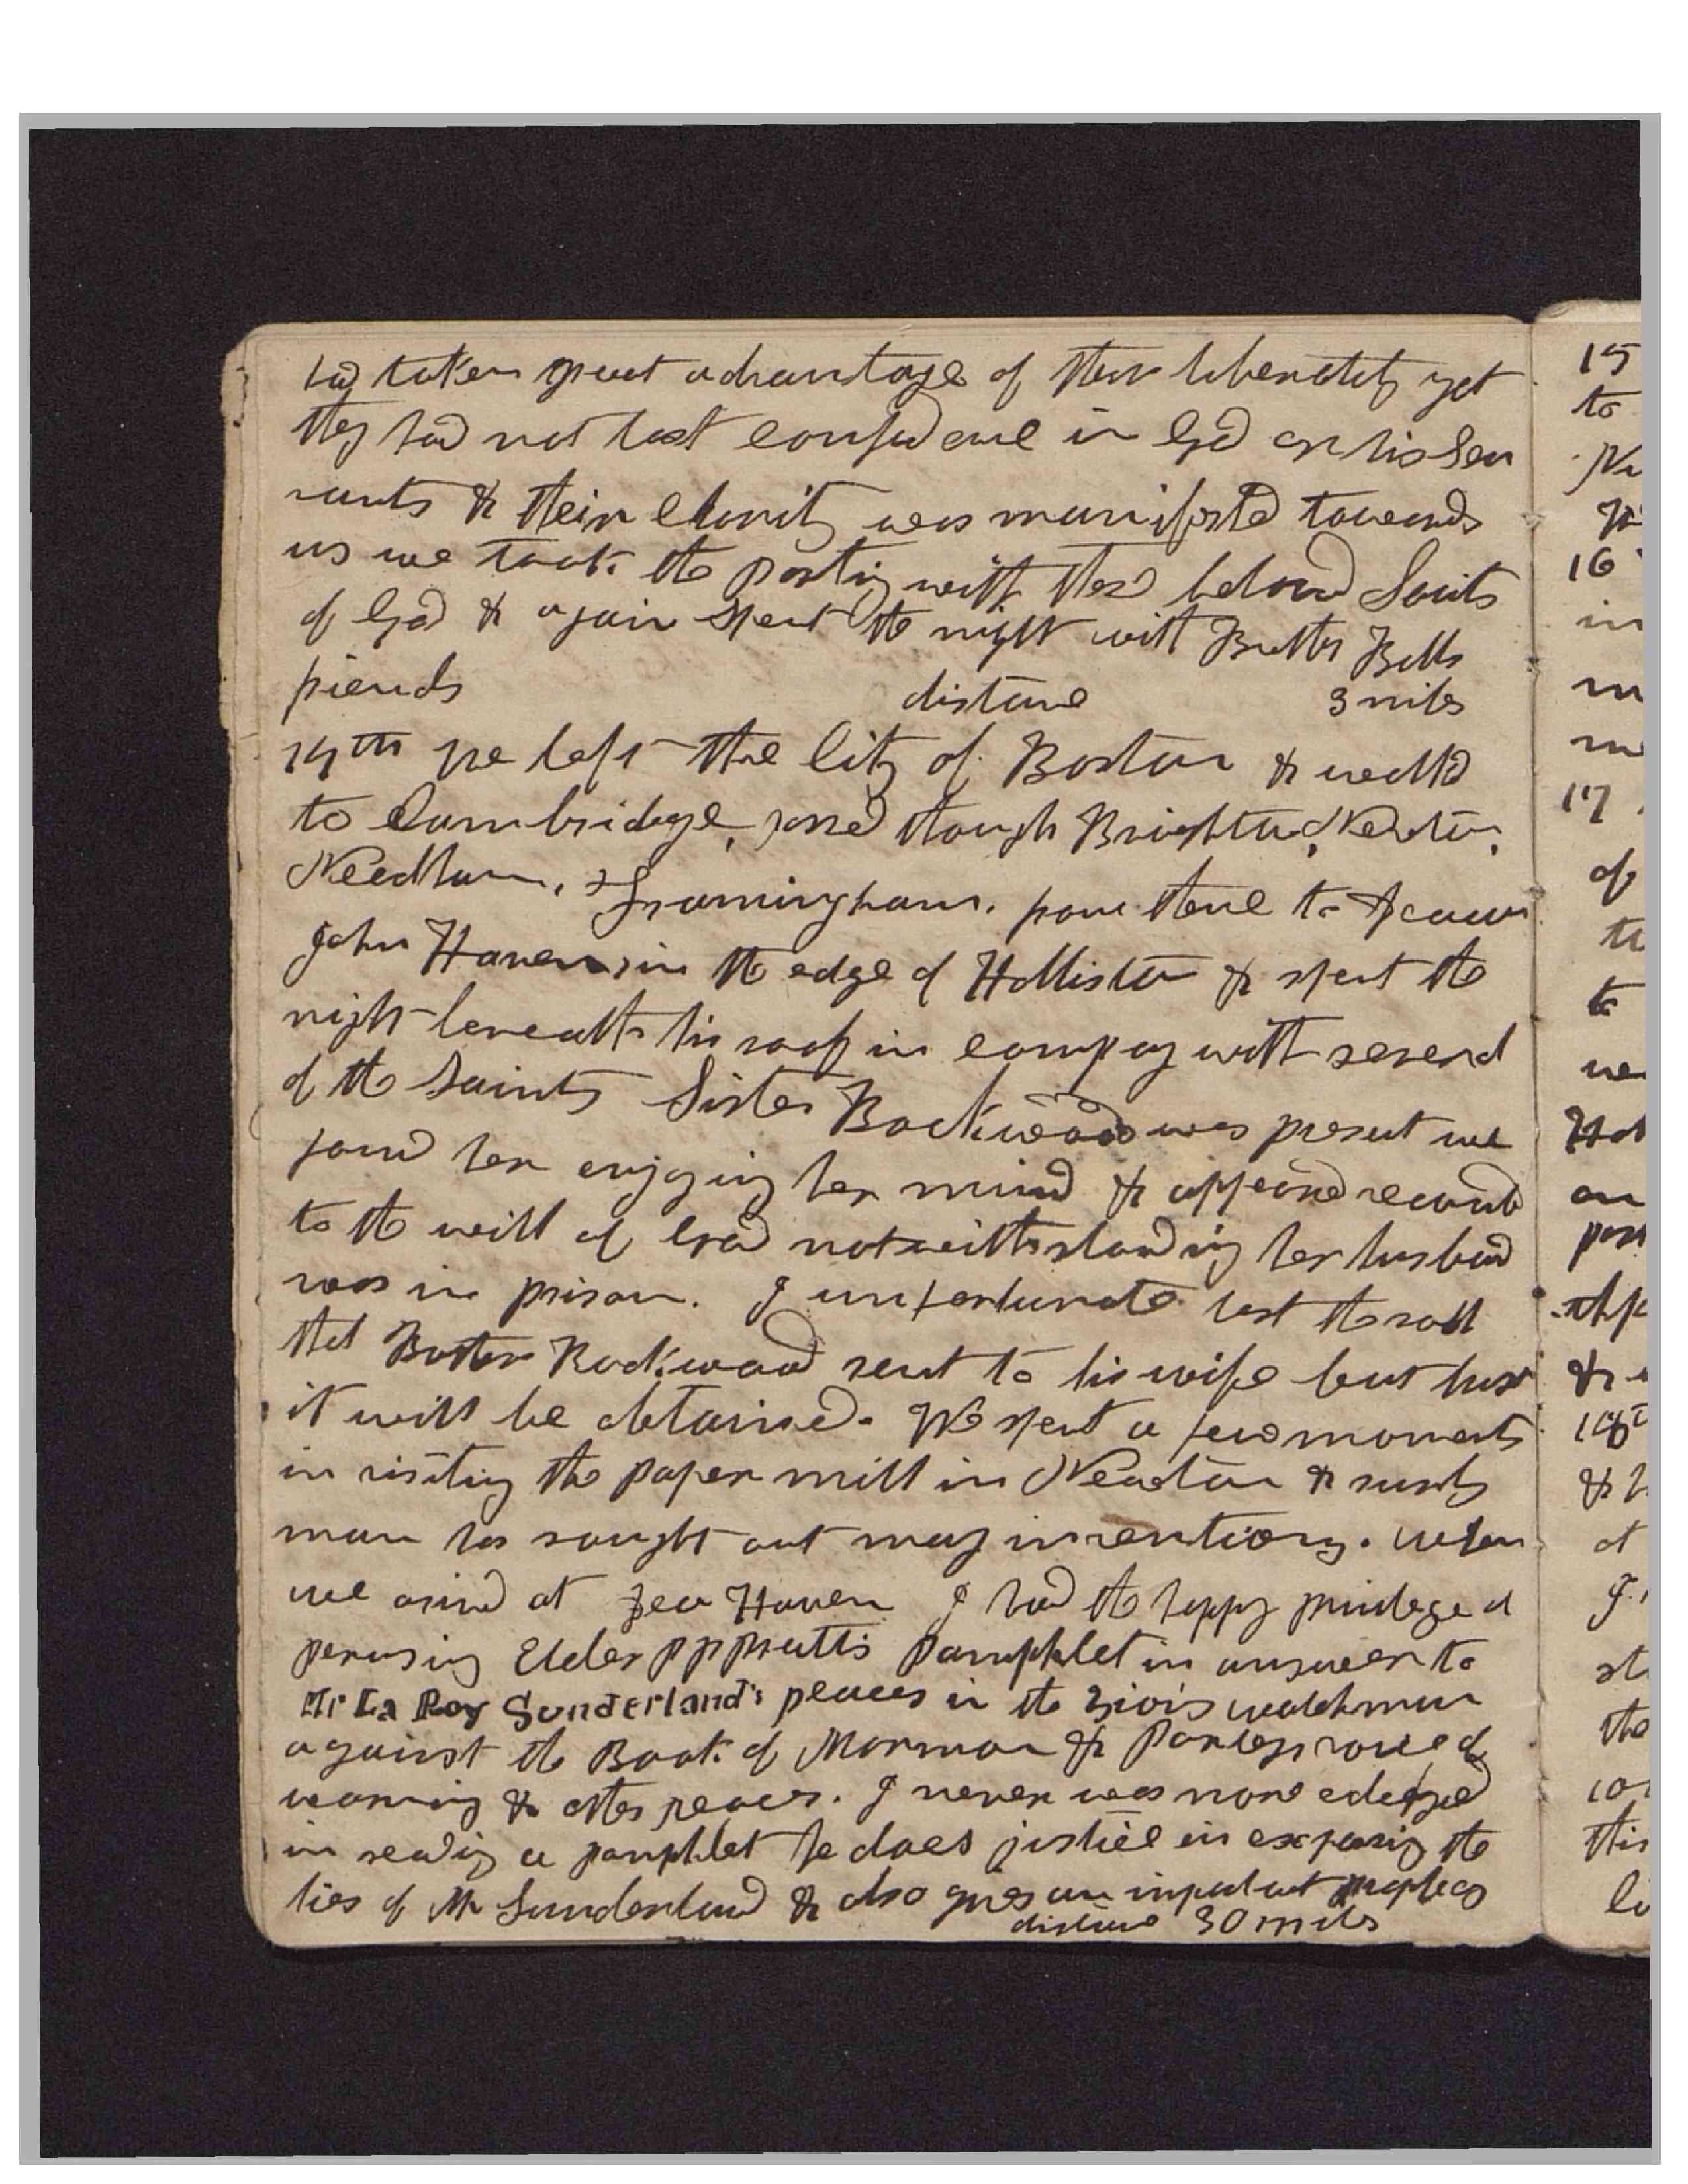 had taken great advantage of their liberality yet
they had not lost confidence in God or his Ser
vants & their Charity was manifested towards
us we took the parting with these beloved Saints
of God & again spent the night with Brother Bells
friends distance 3 miles
14th We left the City of Boston & walked
to Cambridge, passed through Brighton, Newton,
Needham, & Framingham. from thence to
John Haven, in the edge of Holliston & spent the
night beneath his roof in company with several
of the Saints Sister Rockwood was present we
found her enjoying her mind & appeared reconciled
to the will of God notwithstanding her husband
was in prison. I unfortunate lost the
that Brother Rockwood sent to his wife but
it will be obtained. We spent a few moments
in visiting the paper mill in Newton & surely
man has sought out many inventions. When
we arived at Haven I had the happy privilege of
perusing Elder P P Pratts Pamphlet in answer to
Mr La Roy Sunderland's peaces in the Zions watchman
against the Book of Mormon & Parleys voice of
warning & other peaces. I never was more edefyed
in reading a pamphlet he does justice in exposing the
lies of Mr Sunderland & also gives an important prophecy
distance 30 miles
15
to
16
in
m
17
of
to
we
Hol
on
18
& h
at
I
st
the
10
this
li